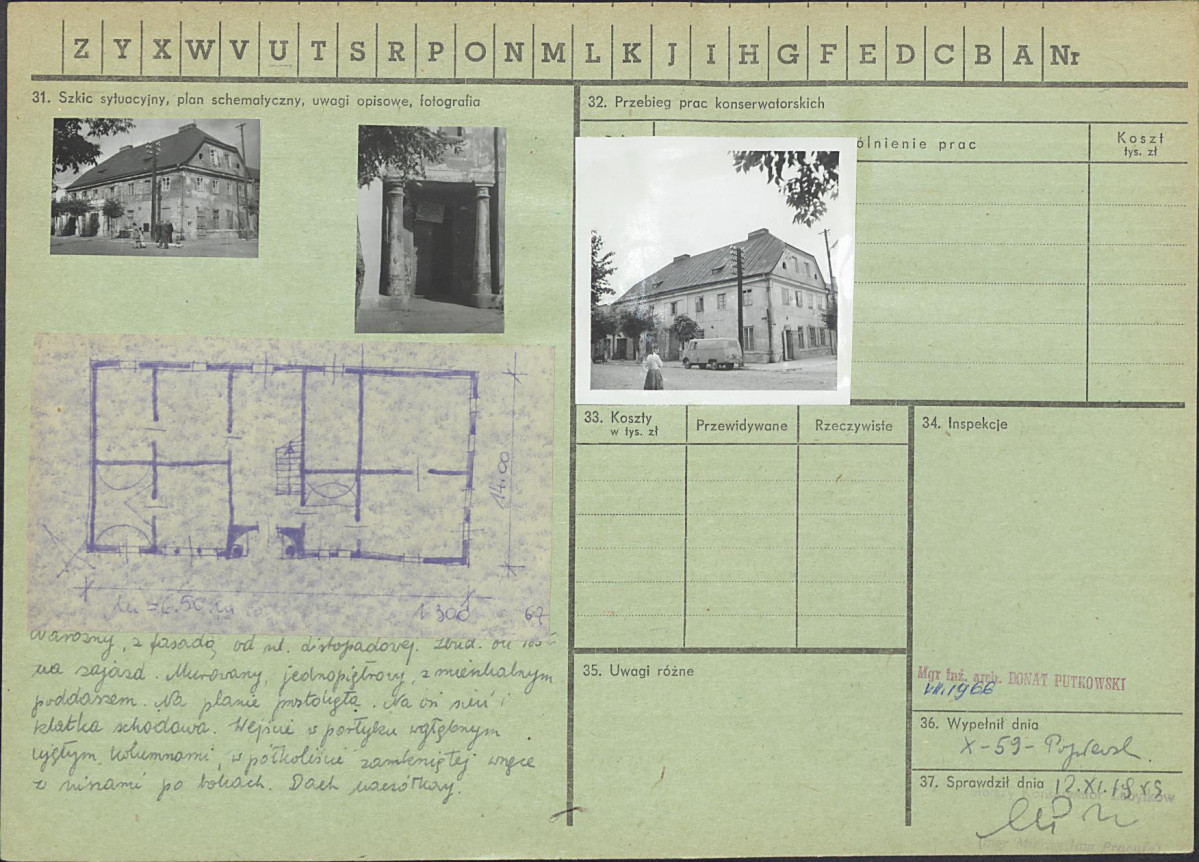 Z Y X W V U T S R P O N M L K J I H G F E D C B A Nr
31. Szkic sytuacyjny, plan schematyczny, uwagi opisowe, fotografia
14.00
1:300
67
narożny, z fasadą od ul. Listopadowej. Zbud. ok
na zajazd. Murowany, jednopiętrowy, z mieszkalnym
poddaszem. Na planie prostokąta. Na osi sień i
klatka schodowa. Wejście w portyku wgłębnym
ujętym kolumnami, w półkoliście zamkniętej wnęce
z niszami po bokach. Dach naczółkowy.
32. Przebieg prac konserwatorskich
ólnienie prac
Koszt
tys. zł
33. Koszty
w tys. zł
Przewidywane
Rzeczywiste
34. Inspekcje
Mgr inż. arch. DONAT PUTKOWSKI
VII.1966
35. Uwagi różne
36. Wypełnił dnia
X-59-
37. Sprawdził dnia 12.XI.1959
Zabytków